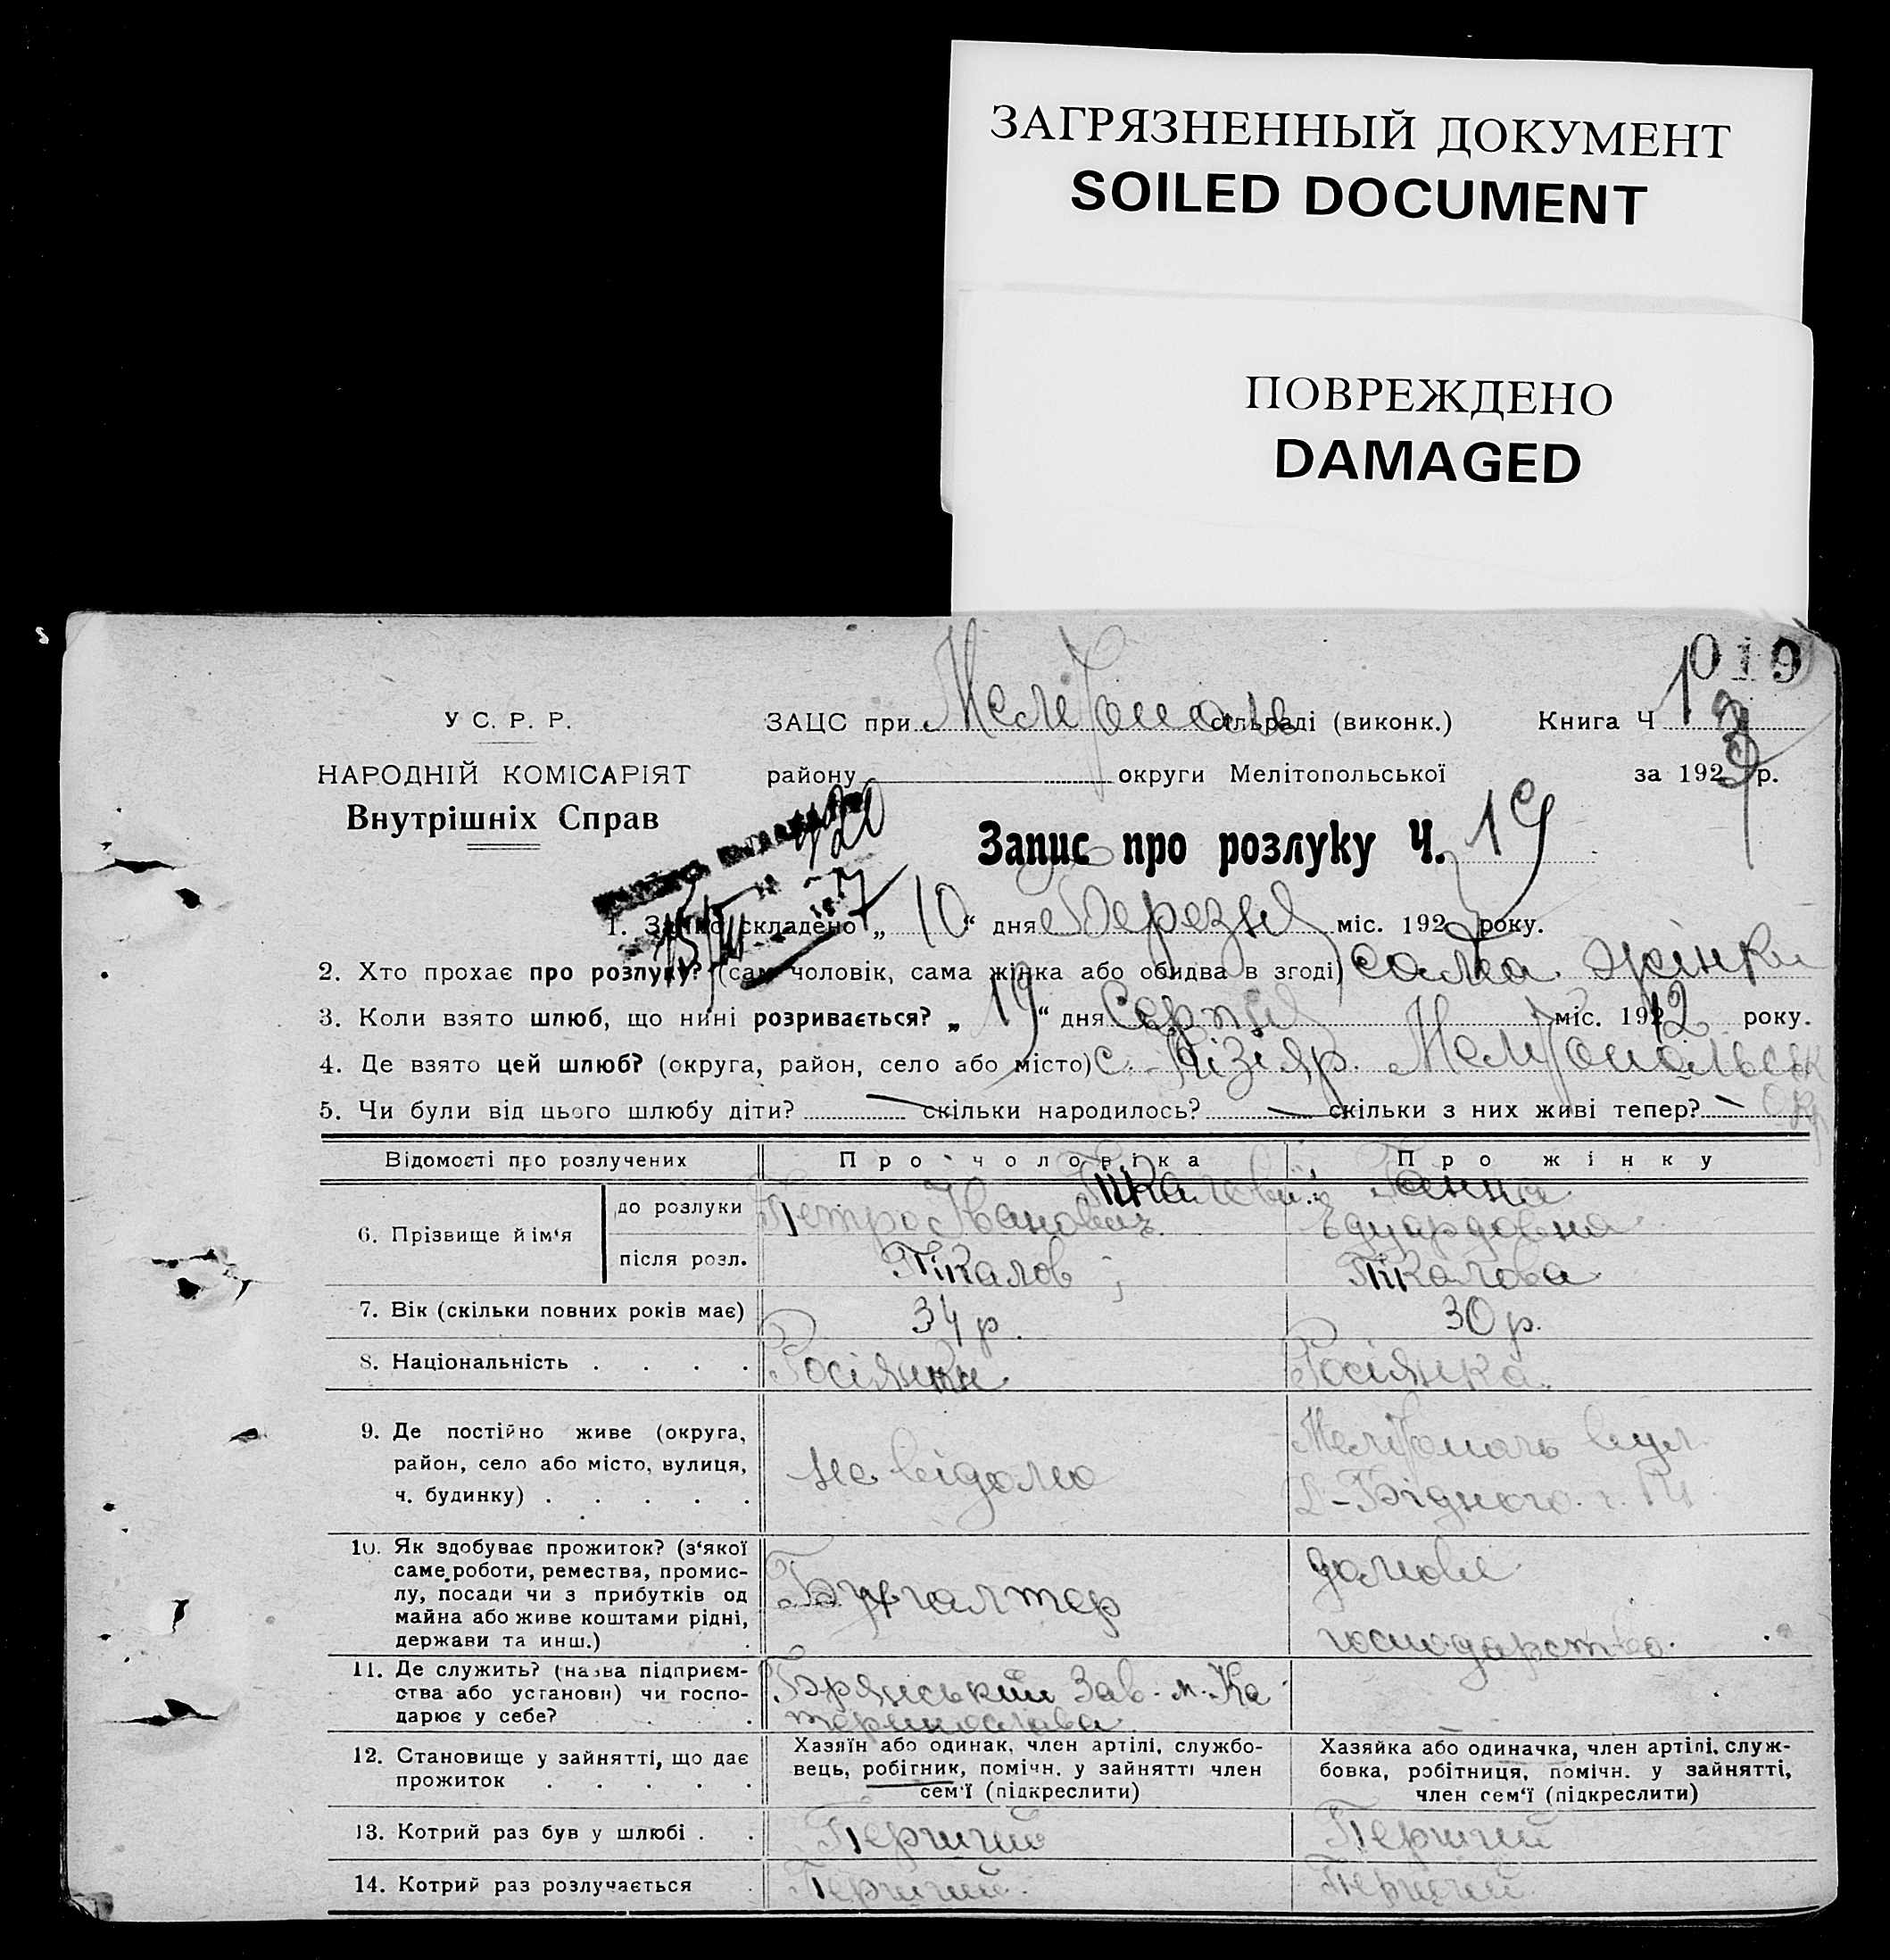 ЗАГРЯЗНЕННЫЙ ДОКУМЕНТ
SOILED DOCUMENT
ПОВРЕЖДЕНО
DAMAGED
019
У С. Р. Р.
ЗАЦС при Мелітополь сільраді (виконк.) Книга Ч 1
НАРОДНІЙ КОМІСАРІЯТ
району округи Мелітопольської за 192 р.
Внутрішніх Справ
Запис про розлуку Ч. 19
1. Запис складено „ 10 “ дня Березня міс. 192 року.
2. Хто прохає про розлуку? (сам чоловік, сама жінка або обидва в згоді) сама жінка
3. Коли взято шлюб, що нині розривається? „ 19 “ дня Серпня міс. 1912 року.
4. Де взято цей шлюб? (округа, район, село або місто) с. Кізіяр. Мелітопольськ
5. Чи були від цього шлюбу діти? — скільки народилось? — скільки з них живі тепер? —
Відомості про розлучених
Про чоловіка
Про жінку
6. Прізвище й ім'я
до розлуки
Пікалови: Ганна
Петро Іванович
Едуардовна
після розл.
Пікалов
Пікалова
7. Вік (скільки повних років має)
34 р.
30 р.
8. Національність . . . .
Росіянин
Росіянка
9. Де постійно живе (округа,
район, село або місто, вулиця,
ч. будинку) . . . . .
не відомо
Мелітополь вул.
Д-Бідного ч. 14
10. Як здобуває прожиток? (з'якої
саме роботи, ремества, промис-
лу, посади чи з прибутків од
майна або живе коштами рідні,
держави та инш.) .
Бухгалтер
домове
господарство.
11. Де служить? (назва підприєм-
ства або установи) чи госпо-
дарює у себе? . . .
Брянський Зав. м. Ка
теринослава
12. Становище у зайнятті, що дає
прожиток . . . . .
Хазяїн або одинак, член артілі, службо-
вець, робітник, помічн. у зайнятті член
сем'ї (підкреслити)
Хазяйка або одиначка, член артілі, служ-
бовка, робітниця, помічн. у зайнятті,
член сем'ї (підкреслити)
13. Котрий раз був у шлюбі . .
Перший
Перший
14. Котрий раз розлучається .
Перший
Перший